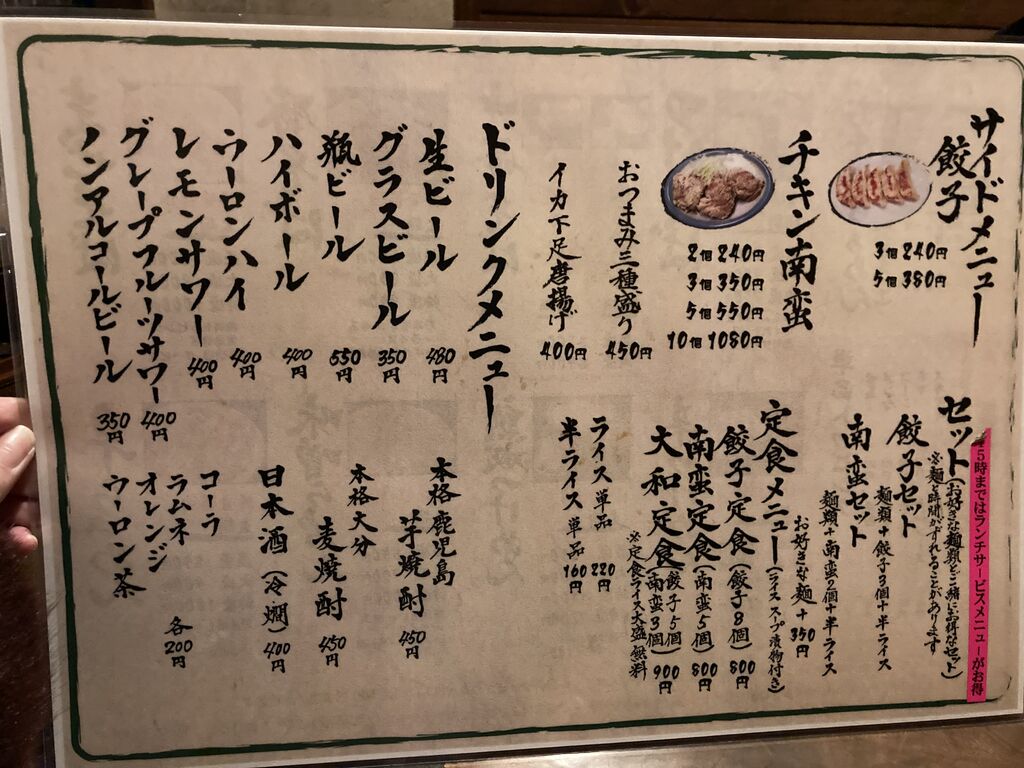 サイドメニュー
餃子
3個 240円
5個 380円
チキン南蛮
2個 240円
3個 350円
5個 550円
10個 1080円
おつまみ三種盛り 450円
イカ下足唐揚げ 400円
ドリンクメニュー
生ビール 480円
グラスビール 350円
瓶ビール 550円
ハイボール 400円
ウーロンハイ 400円
レモンサワー 400円
グレープフルーツサワー 400円
ノンアルコールビール 350円
5時まではランチサービスメニューがお得
セット(お好きな麺類とご一緒にお得なセット)
※麺と時間がずれることがあります
餃子セット
麺類+餃子3個+半ライス
南蛮セット
麺類+南蛮2個+半ライス
お好きな麺+350円
定食メニュー(ライス スープ 漬物付き)
餃子定食(餃子8個) 800円
南蛮定食(南蛮5個) 800円
大和定食(餃子5個 南蛮3個) 900円
※定食ライス大盛無料
ライス 単品 220円
半ライス 単品 160円
本格鹿児島
芋焼酎 450円
本格大分
麦焼酎 450円
日本酒(冷燗) 400円
コーラ
ラムネ
オレンジ
ウーロン茶
各200円